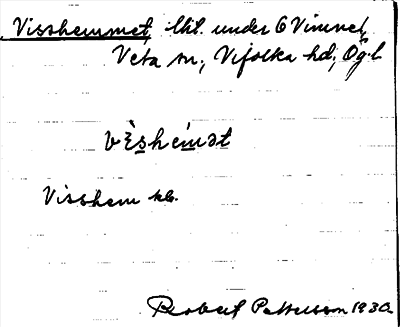 Visshemmet lht. under 6 Vimne,
Veta sn, Vifolka hd, Ög.l
vèshèmət
Visshem kb.
Robert Pettersson 1930